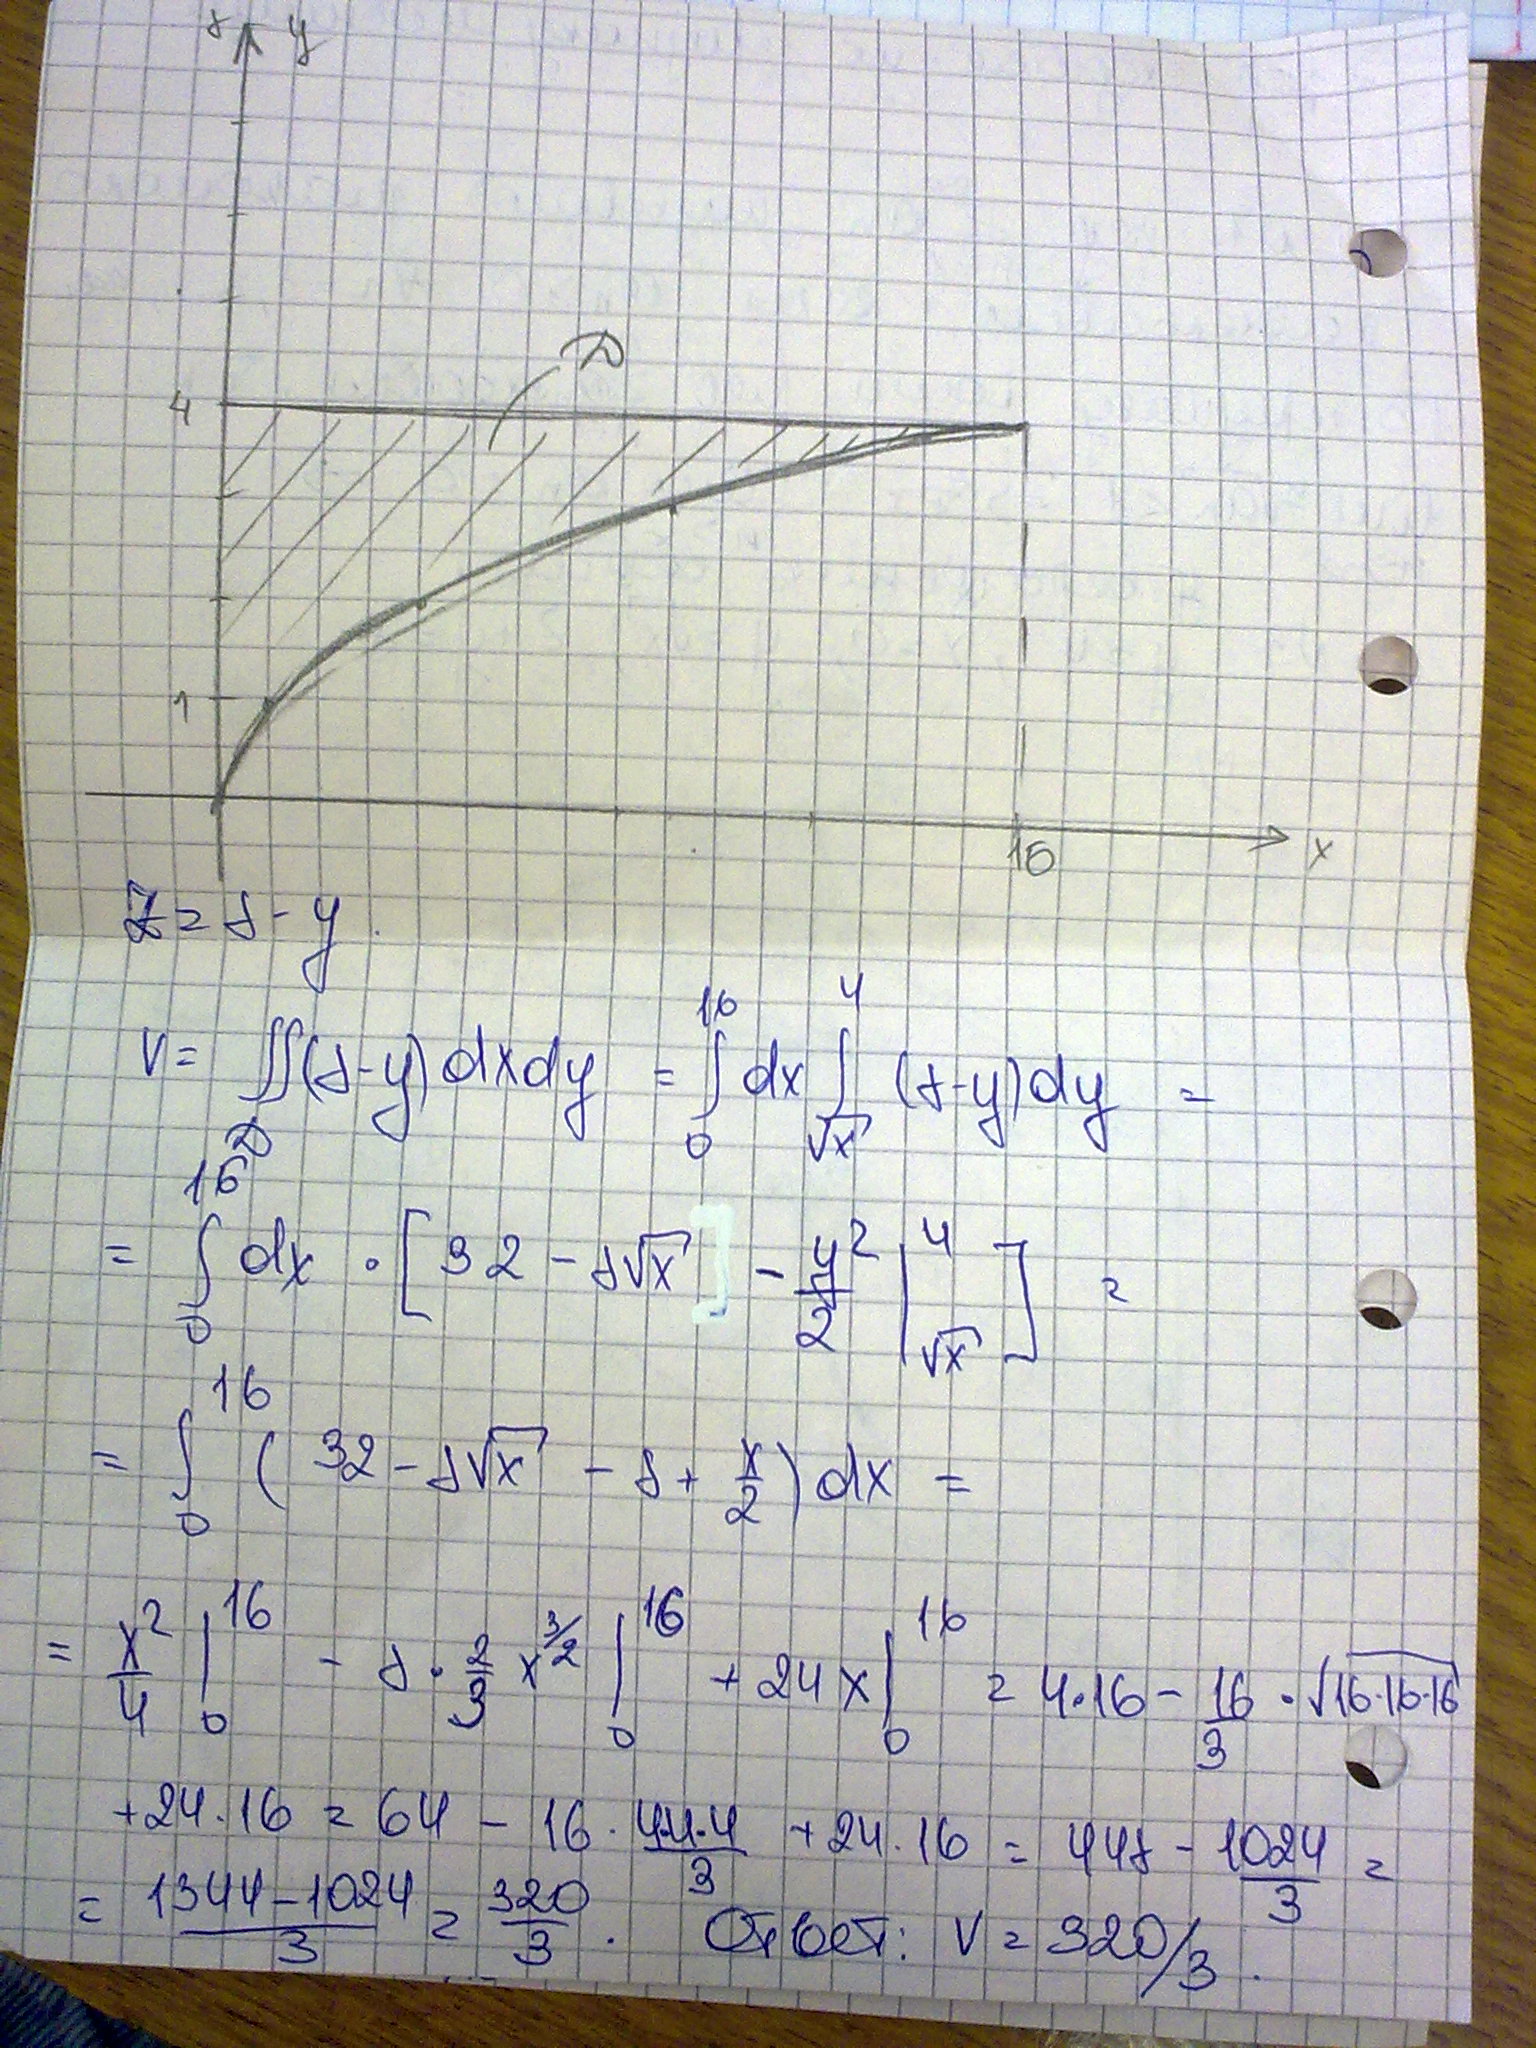 8 y
D
4
1
16 x
Z = 8 - y.
V = ∬_D (8-y) dxdy = ∫_0^16 dx ∫_{√x}^4 (8-y) dy =
= ∫_0^16 dx · [32 - 8√x - y²/2 |_{√x}^4] =
= ∫_0^16 (32 - 8√x - 8 + x/2) dx =
= x²/4 |_0^16 - 8 · 2/3 x^{3/2} |_0^16 + 24x |_0^16 = 4·16 - 16/3 · √16·16·16
+24·16 = 64 - 16 · 4·4·4/3 + 24·16 = 448 - 1024/3 =
= 1344-1024/3 = 320/3 . Ответ: V = 320/3 .